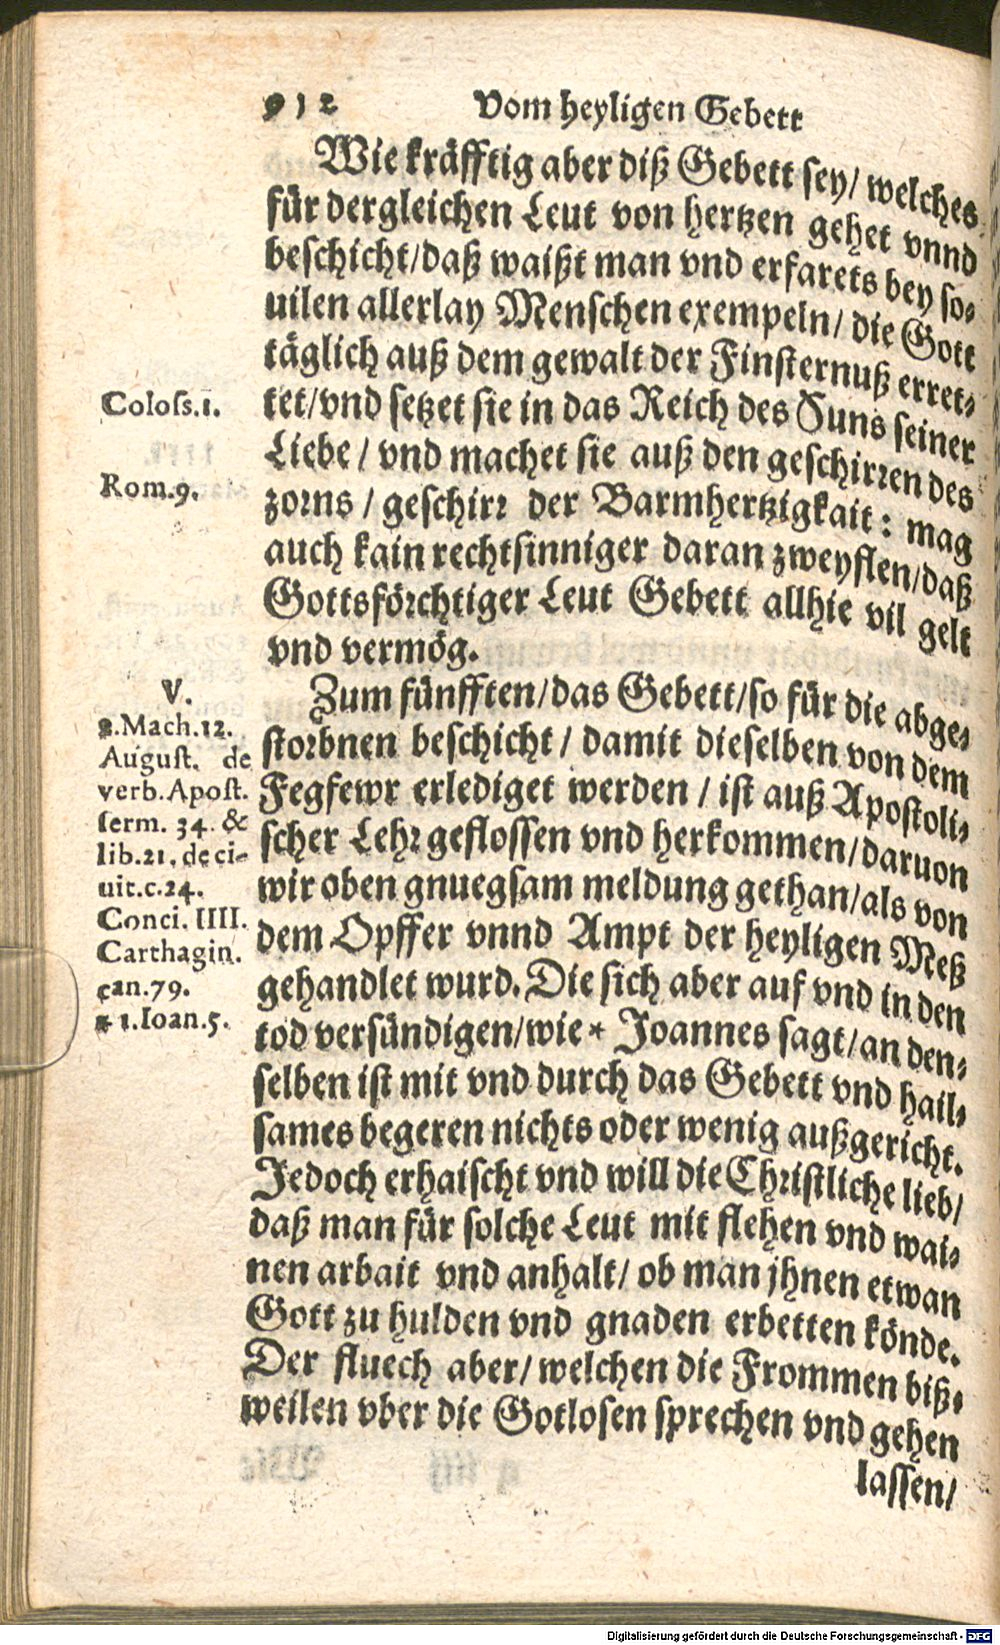 912 Vom heyligen Gebett
Wie kräfftig aber diß Gebett sey/ welches
für dergleichen Leut von hertzen gehet vnnd
beschicht/daß waißt man vnd erfarets bey so-
uilen allerlay Menschen exempeln/ die Gott
täglich auß dem gewalt der Finsternuß erret-
Coloss.1.
tet/vnd setzet sie in das Reich des Suns seiner
Liebe/ vnd machet sie auß den geschirren des
Rom.9.
zorns/ geschirr der Barmhertzigkait: mag
auch kain rechtsinniger daran zweyflen/daß
Gottsförchtiger Leut Gebett allhie vil gelt
vnd vermög.
V.
Zum fünfften/das Gebett/so für die abge-
2.Mach.12.
storbnen beschicht/ damit dieselben von dem
August. de
Fegfewr erlediget werden/ ist auß Apostoli-
verb.Apost.
serm. 34. &
scher Lehr geflossen vnd herkommen/daruon
lib.21.de ci-
wir oben gnuegsam meldung gethan/als von
uit.c.24.
Conci. IIII.
dem Opffer vnnd Ampt der heyligen Meß
Carthagin.
can.79.
gehandlet wurd. Die sich aber auf vnd in den
* 1.Ioan.5.
tod versündigen/wie * Joannes sagt/an den-
selben ist mit vnd durch das Gebett vnd hail-
sames begeren nichts oder wenig außgericht.
Jedoch erhaischt vnd will die Christliche lieb/
daß man für solche Leut mit flehen vnd wai-
nen arbait vnd anhalt/ ob man jhnen etwan
Gott zu hulden vnd gnaden erbetten könde.
Der fluech aber/ welchen die Frommen biß-
weilen vber die Gotlosen sprechen vnd gehen
lassen/
Digitalisierung gefördert durch die Deutsche Forschungsgemeinschaft - DFG